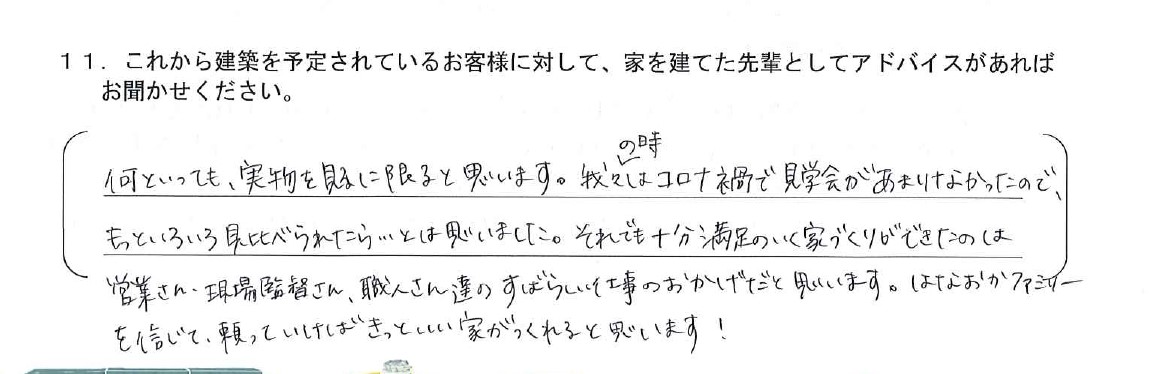 11．これから建築を予定されているお客様に対して、家を建てた先輩としてアドバイスがあれば
お聞かせください。
何といっても、実物を見るに限ると思います。我々の時はコロナ禍で見学会があまりなかったので、
もっといろいろ見比べられたら…とは思いました。それでも十分満足のいく家づくりができたのは
営業さん・現場監督さん、職人さん達のすばらしい仕事のおかげだと思います。はなおかファミリー
を信じて、頼っていけばきっといい家がつくれると思います！